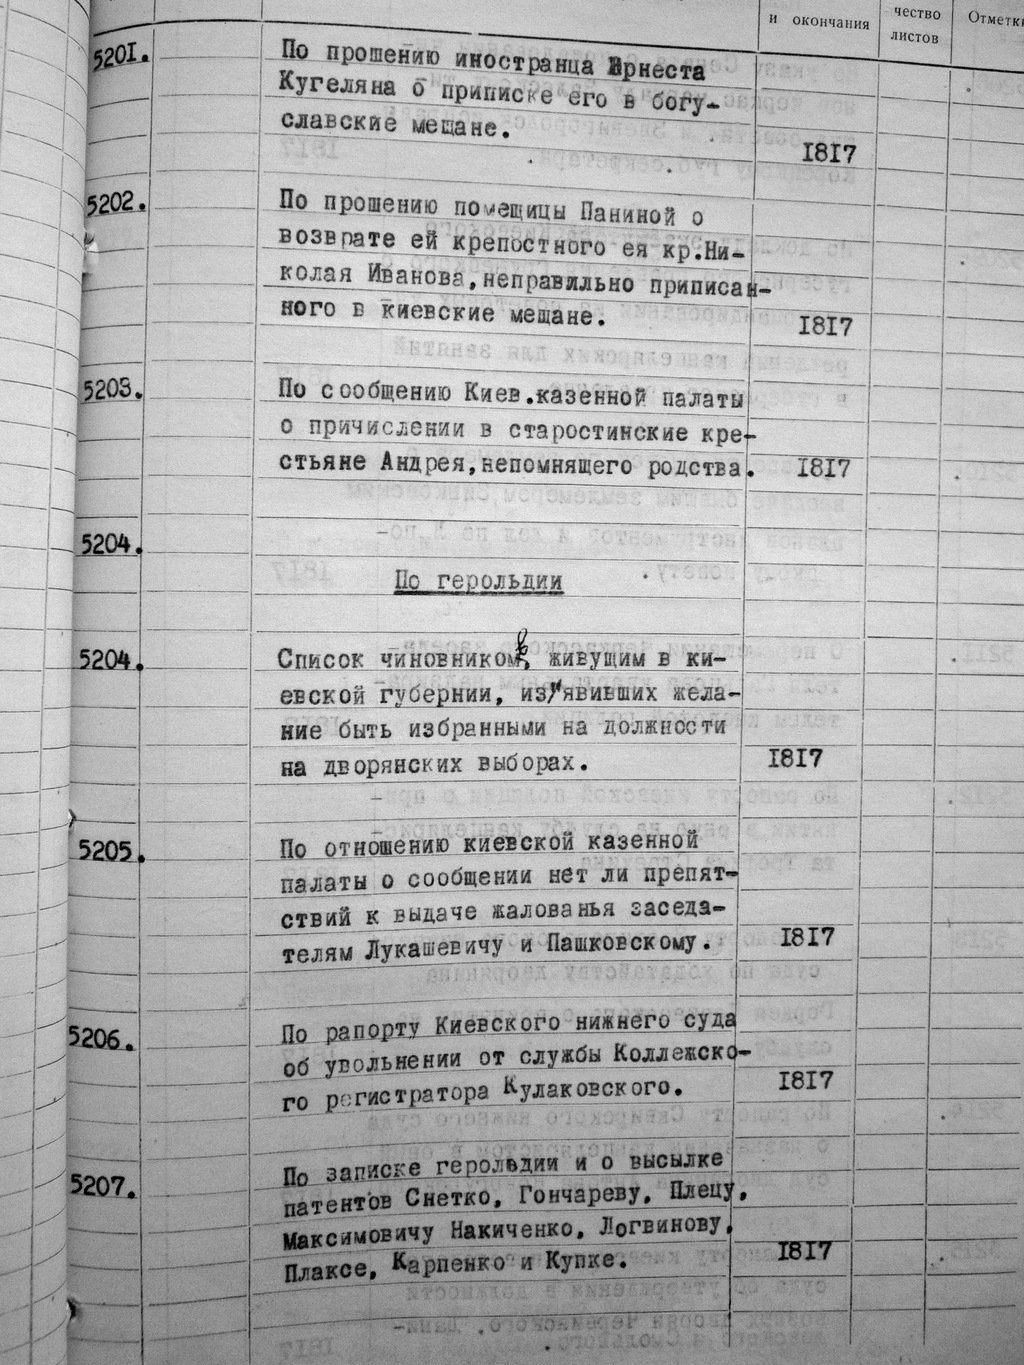 и окончания
чество
листов
Отметки
5201.
По прошению иностранца Эрнеста
Кугеляна о приписке его в богу-
славские мещане.
1817
5202.
По прошению помещицы Паниной о
возврате ей крепостного ея кр.Ни-
колая Иванова,неправильно приписан-
ного в киевские мещане.
1817
5203.
По сообщению Киев.казенной палаты
о причислении в старостинские кре-
стьяне Андрея,непомнящего родства.
1817
5204.
По герольдии
5204.
Список чиновников, живущим в ки-
евской губернии, из'явивших жела-
ние быть избранными на должности
на дворянских выборах.
1817
5205.
По отношению киевской казенной
палаты о сообщении нет ли препят-
ствий к выдаче жалованья заседа-
телям Лукашевичу и Пашковскому.
1817
5206.
По рапорту Киевского нижнего суда
об увольнении от службы Коллежско-
го регистратора Кулаковского.
1817
5207.
По записке герольдии и о высылке
патентов Снетко, Гончареву, Плецу,
Максимовичу Накиченко, Логвинову,
Плаксе, Карпенко и Купке.
1817